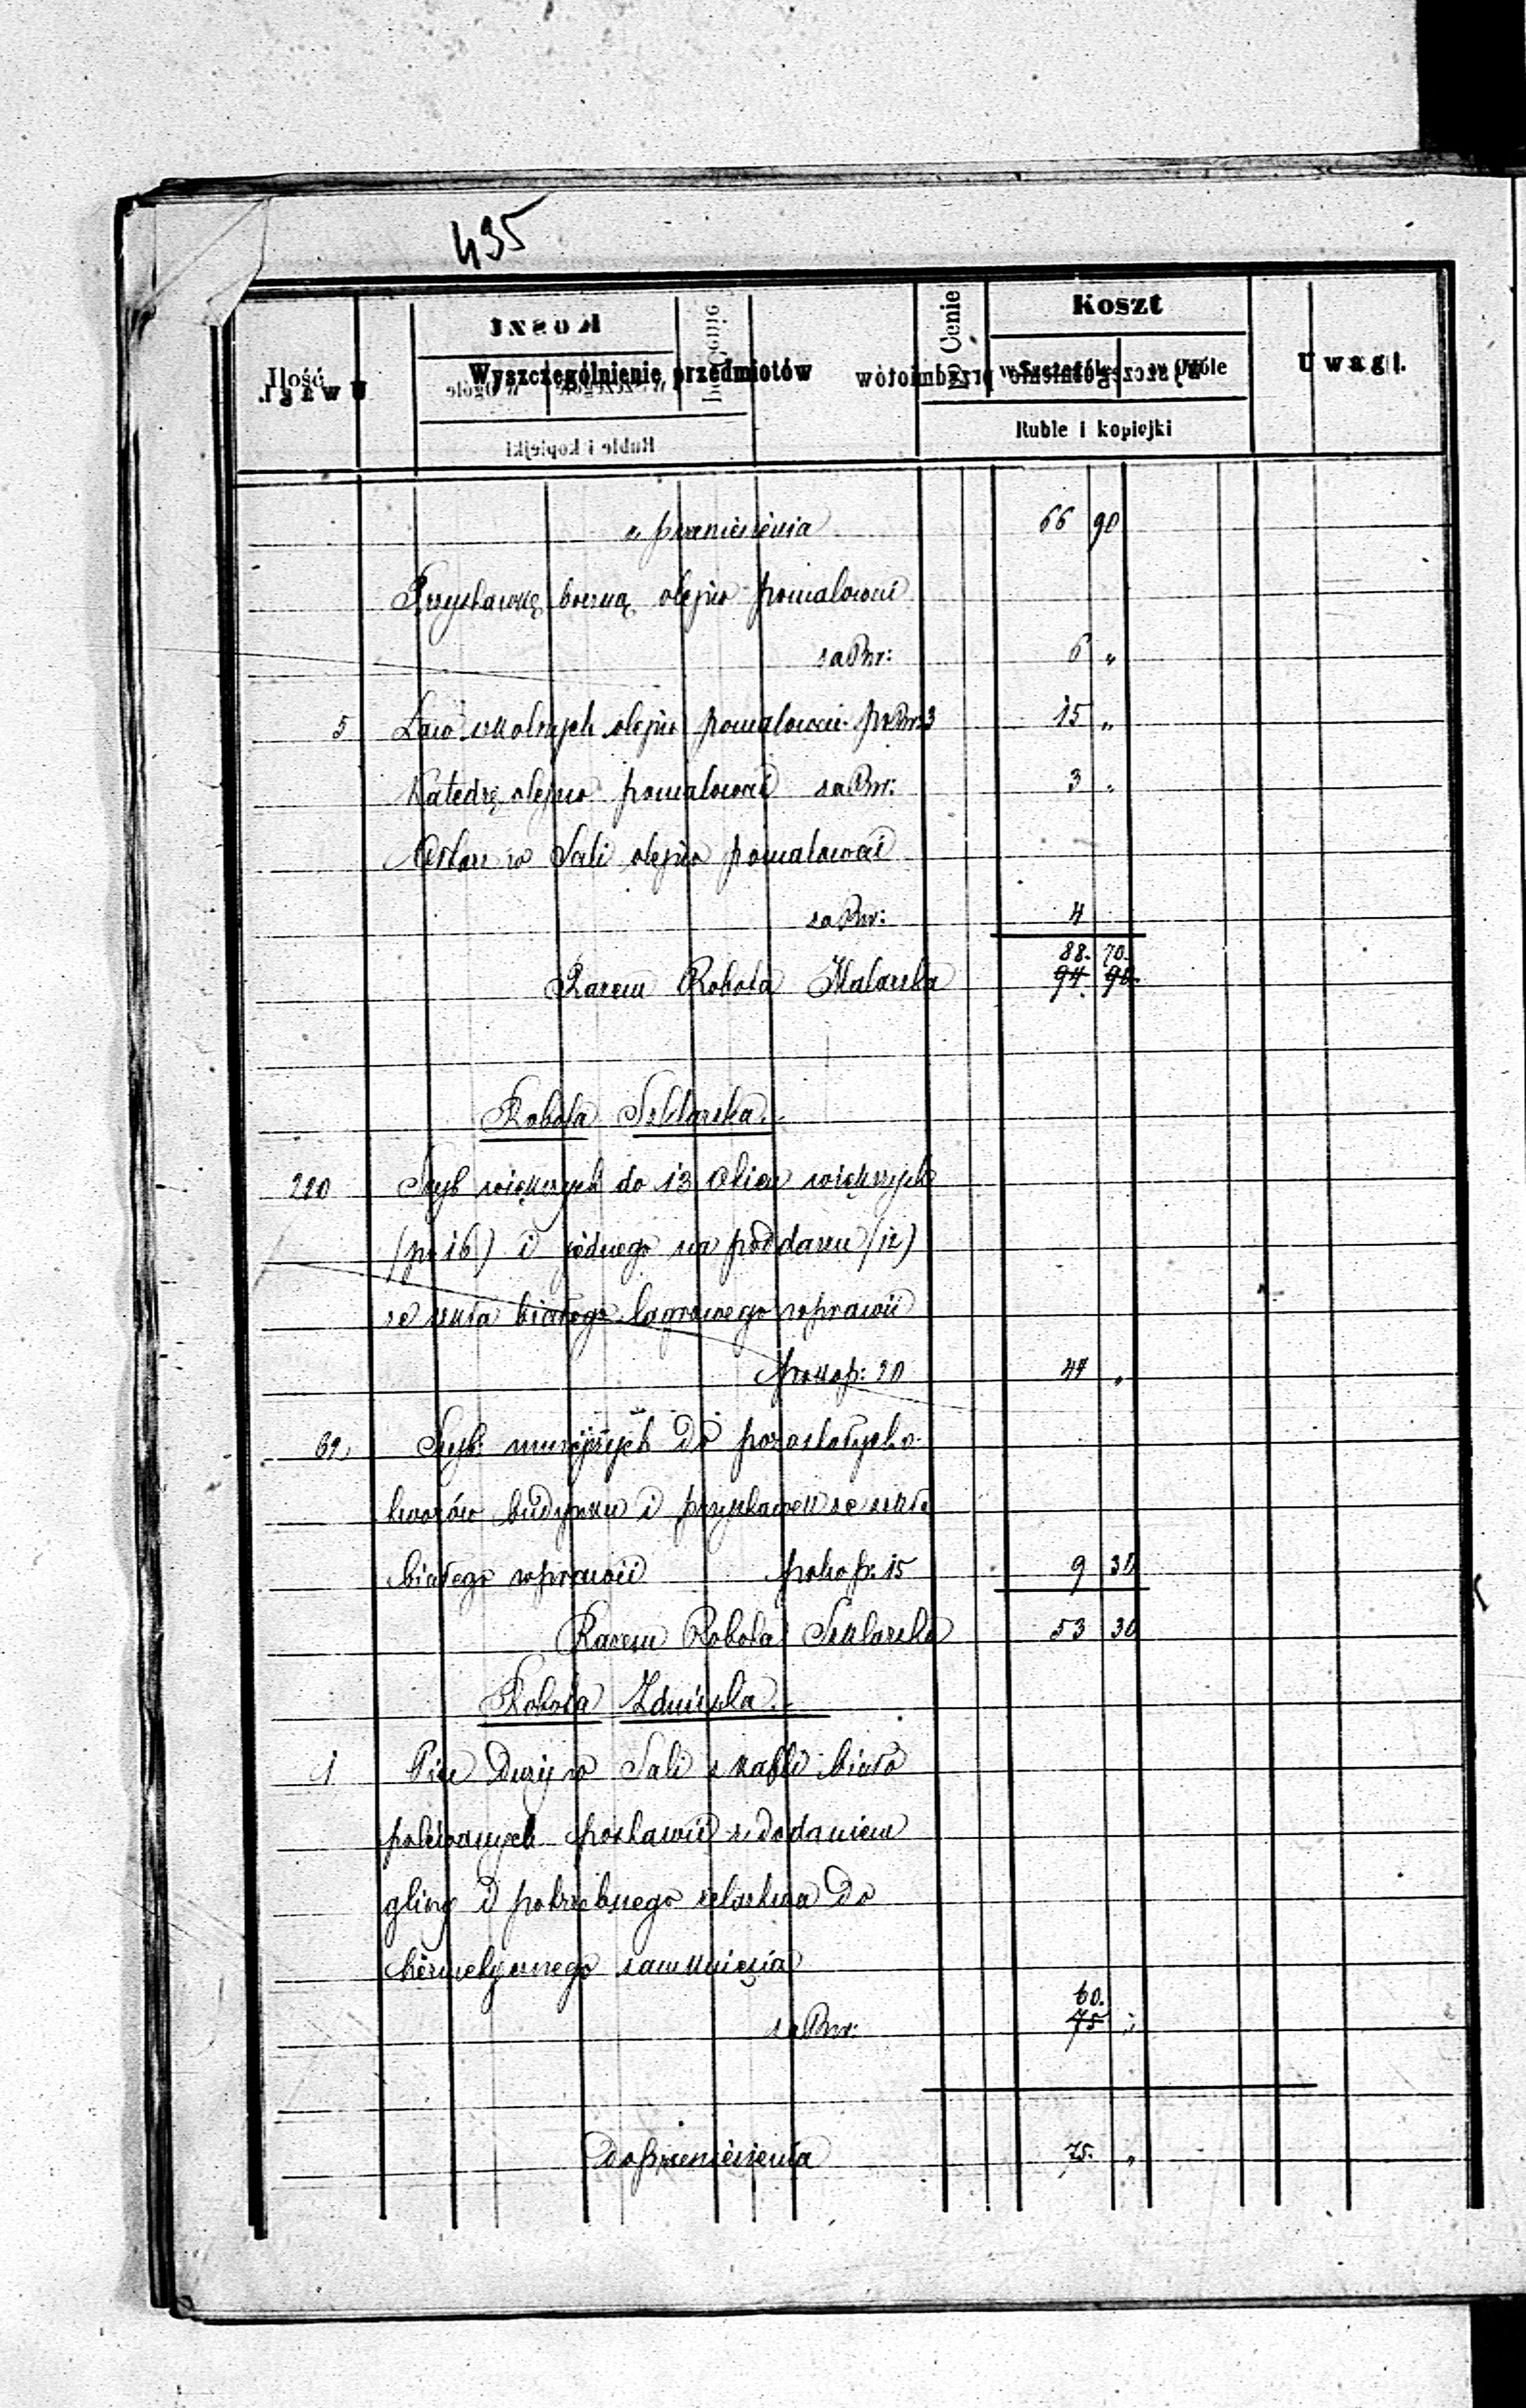 435
Ilość
Wyszczególnienie przedmiotów
Cenie
Koszt
w Szczególe
w Ogóle
Ruble i kopiejki
Uwagi.
z przeniesienia 66 90
Przystawkę boczną olejno pomalować
za Rsr: 6 "
5 Ław szkolnych olejno pomalować po Rsr. 3 15 "
Katedrę olejno pomalować za Rsr: 3 "
w Sali olejno pomalować
za Rsr: 4
88. 70.
Razem Robota Malarska 94. 90.
Robota Szklarska.
220 Szyb większych do 13 Okien większych
(po 16) i jednego na poddaszu (12)
ze szkła białego lagrowego wprawić
po kop: 20 44 "
62, Szyb mniejszych do pozostałych o-
tworów budynku i przystawek ze szkła
białego wprawić po kop: 15 9 30
Razem Robota Szklarska 53 30
Robota Zduńska.
1 Piec Duży w Sali z kafli biało
polewanych postawić z dodaniem
gliny i potrzebnego żelastwa do
hermetycznego zamknięcia
60.
za Rsr: 75 "
do przeniesienia 75. "